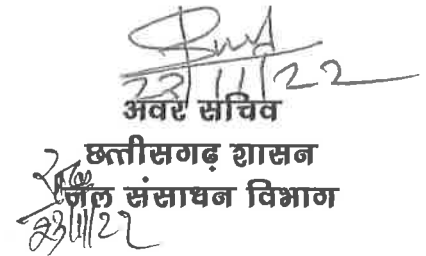 23/11/22
अवर सचिव
छत्तीसगढ़ शासन
जल संसाधन विभाग
23/11/22